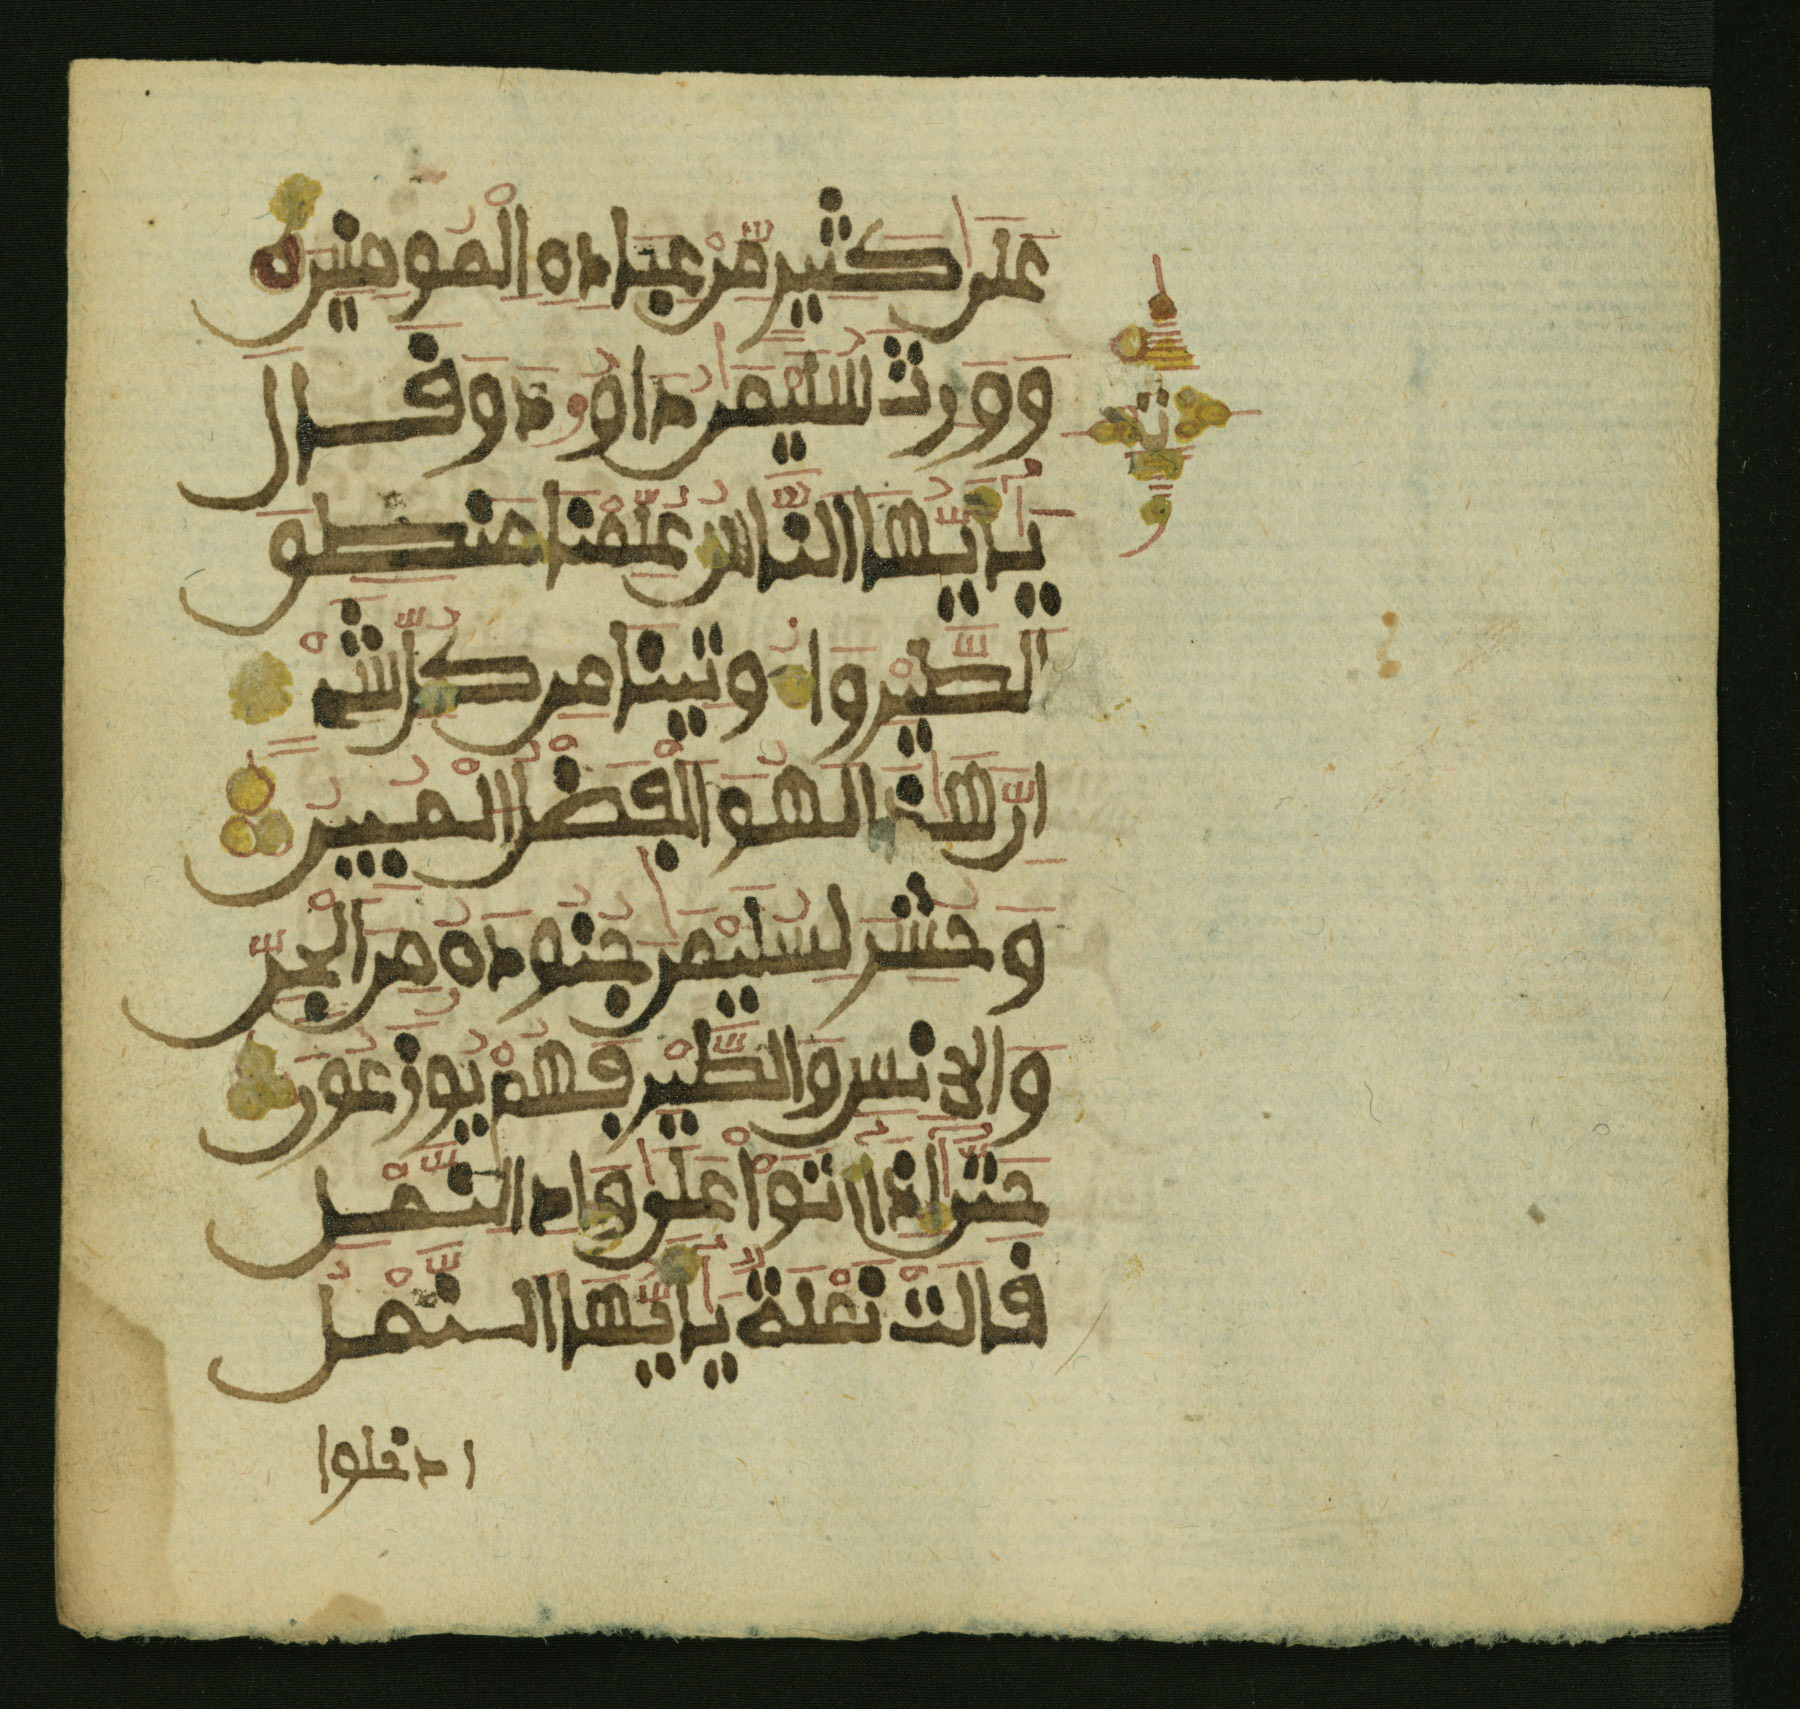 عَلَىٰ كَثِيرٍ مِّنْ عِبَادِهِ الْمُومِنِينَ
وَوَرِثَ سُلَيْمَٰنُ دَاوُۥدَ وَقَالَ
يَٰأَيُّهَا النَّاسُ عُلِّمْنَا مَنطِقَ
الطَّيْرِ وَأُوتِينَا مِن كُلِّ شَيْءٍ
إِنَّ هَٰذَا لَهُوَ الْفَضْلُ الْمُبِينُ
وَحُشِرَ لِسُلَيْمَٰنَ جُنُودُهُ مِنَ الْجِنِّ
وَالْإِنسِ وَالطَّيْرِ فَهُمْ يُوزَعُونَ
حَتَّىٰ إِذَا أَتَوْا عَلَىٰ وَادِ النَّمْلِ
قَالَتْ نَمْلَةٌ يَٰأَيُّهَا النَّمْلُ
ادخلوا